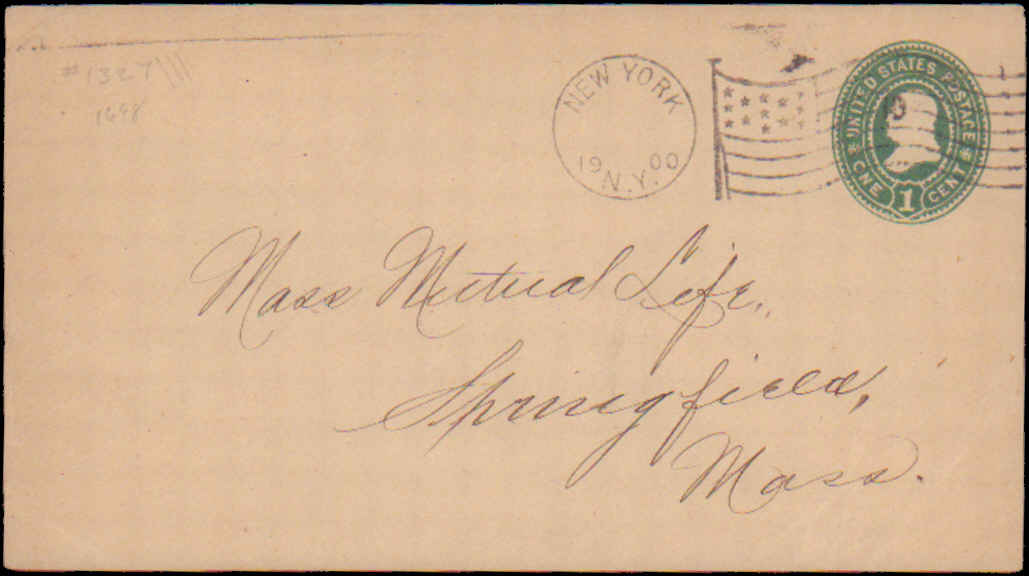 #1327
NEW YORK
1900
N.Y.
UNITED STATES POSTAGE
ONE 1 CENT
Mass Mutual Life.,
Springfield,
Mass.